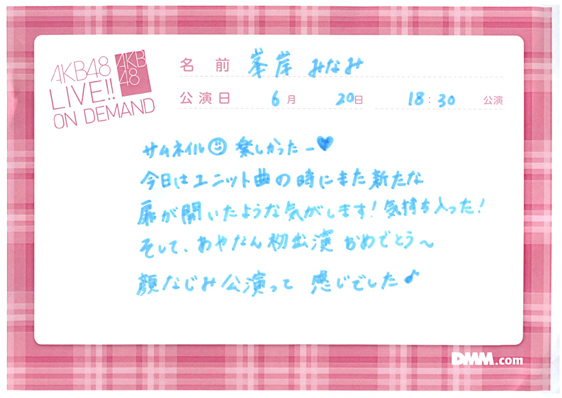 AKB48
LIVE!!
ON DEMAND
AKB
48
名 前 峯岸 みなみ
公演日 6月 20日 18:30 公演
サムネイル 楽しかったー♥
今日はユニット曲の時にまた新たな
扉が開いたような気がします!気持ち入った!
そして、あやなん初出演 おめでとう〜
顔なじみ公演って 感じでした♪
DMM.com